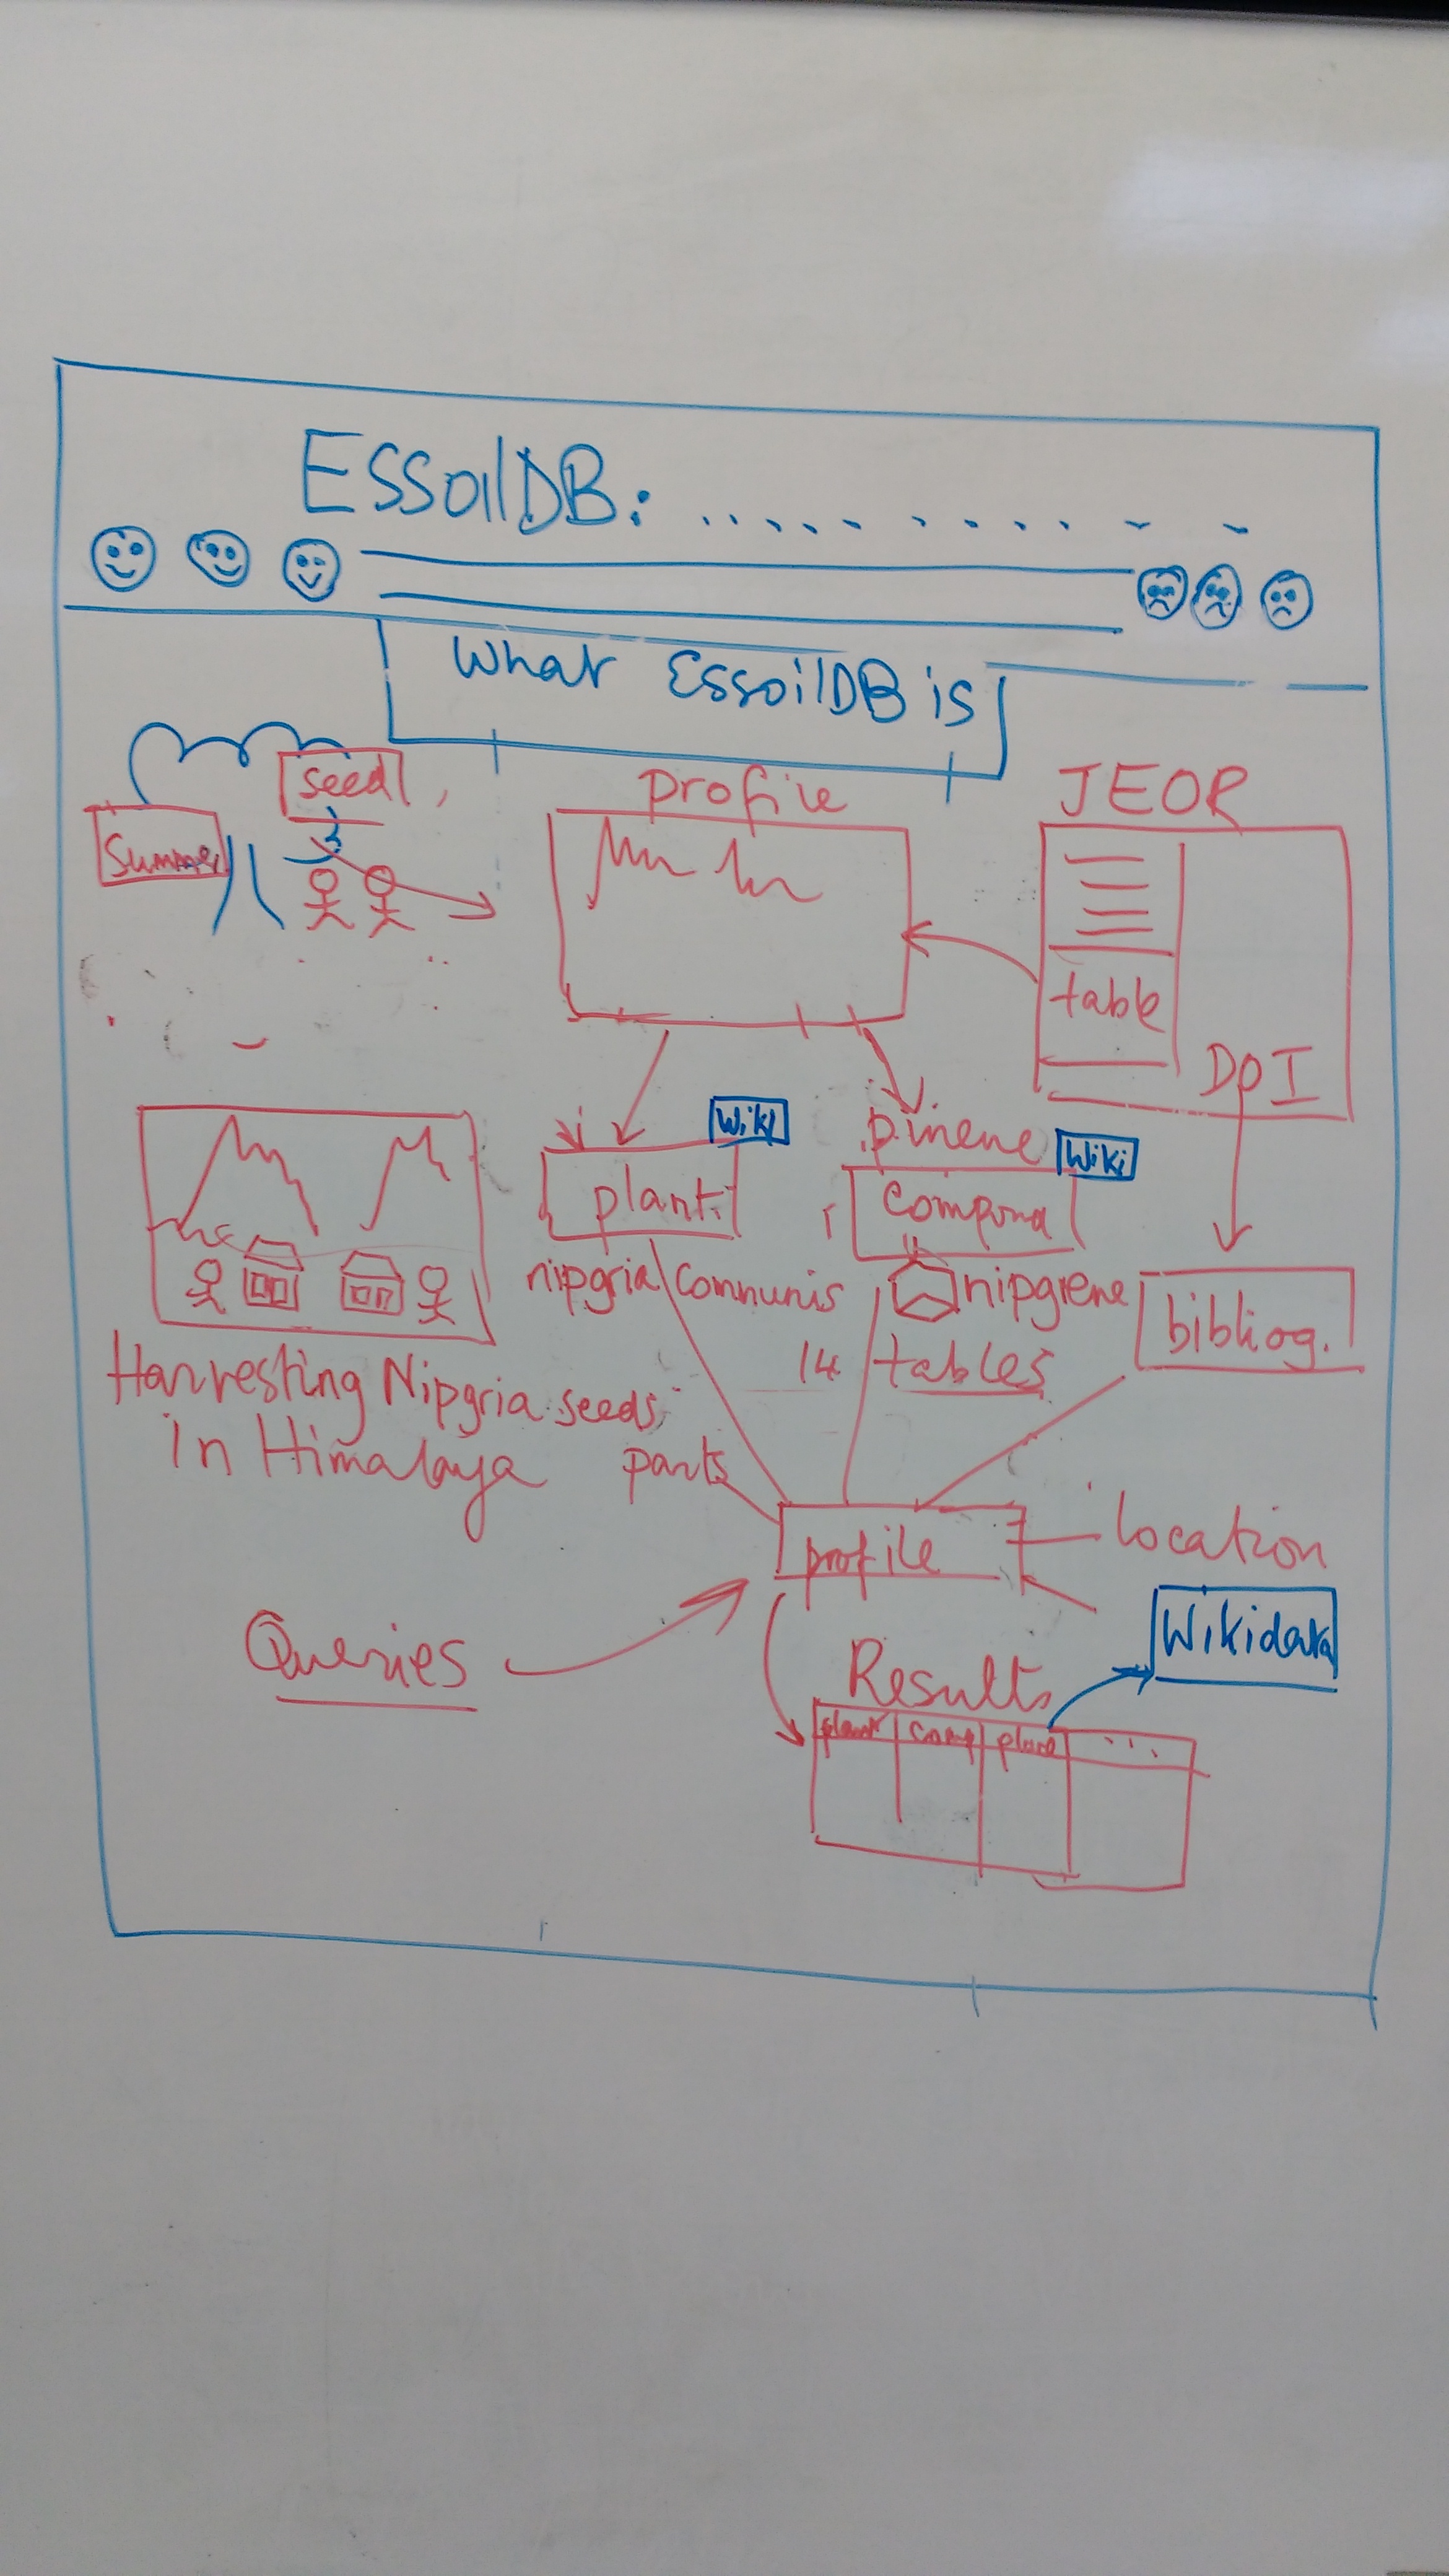 EssoilDB: . . . . . . . . . . - -
What EssoilDB is
seed,
Summer
profile
JEOR
table
DOI
Wiki
pinene
Wiki
plant
Compound
nipgria communis
nipgrene
bibliog.
14 tables
Harvesting Nipgria seeds
in Himalaya
parts
profile
location
Queries
Wikidata
Results
plant comp place ...